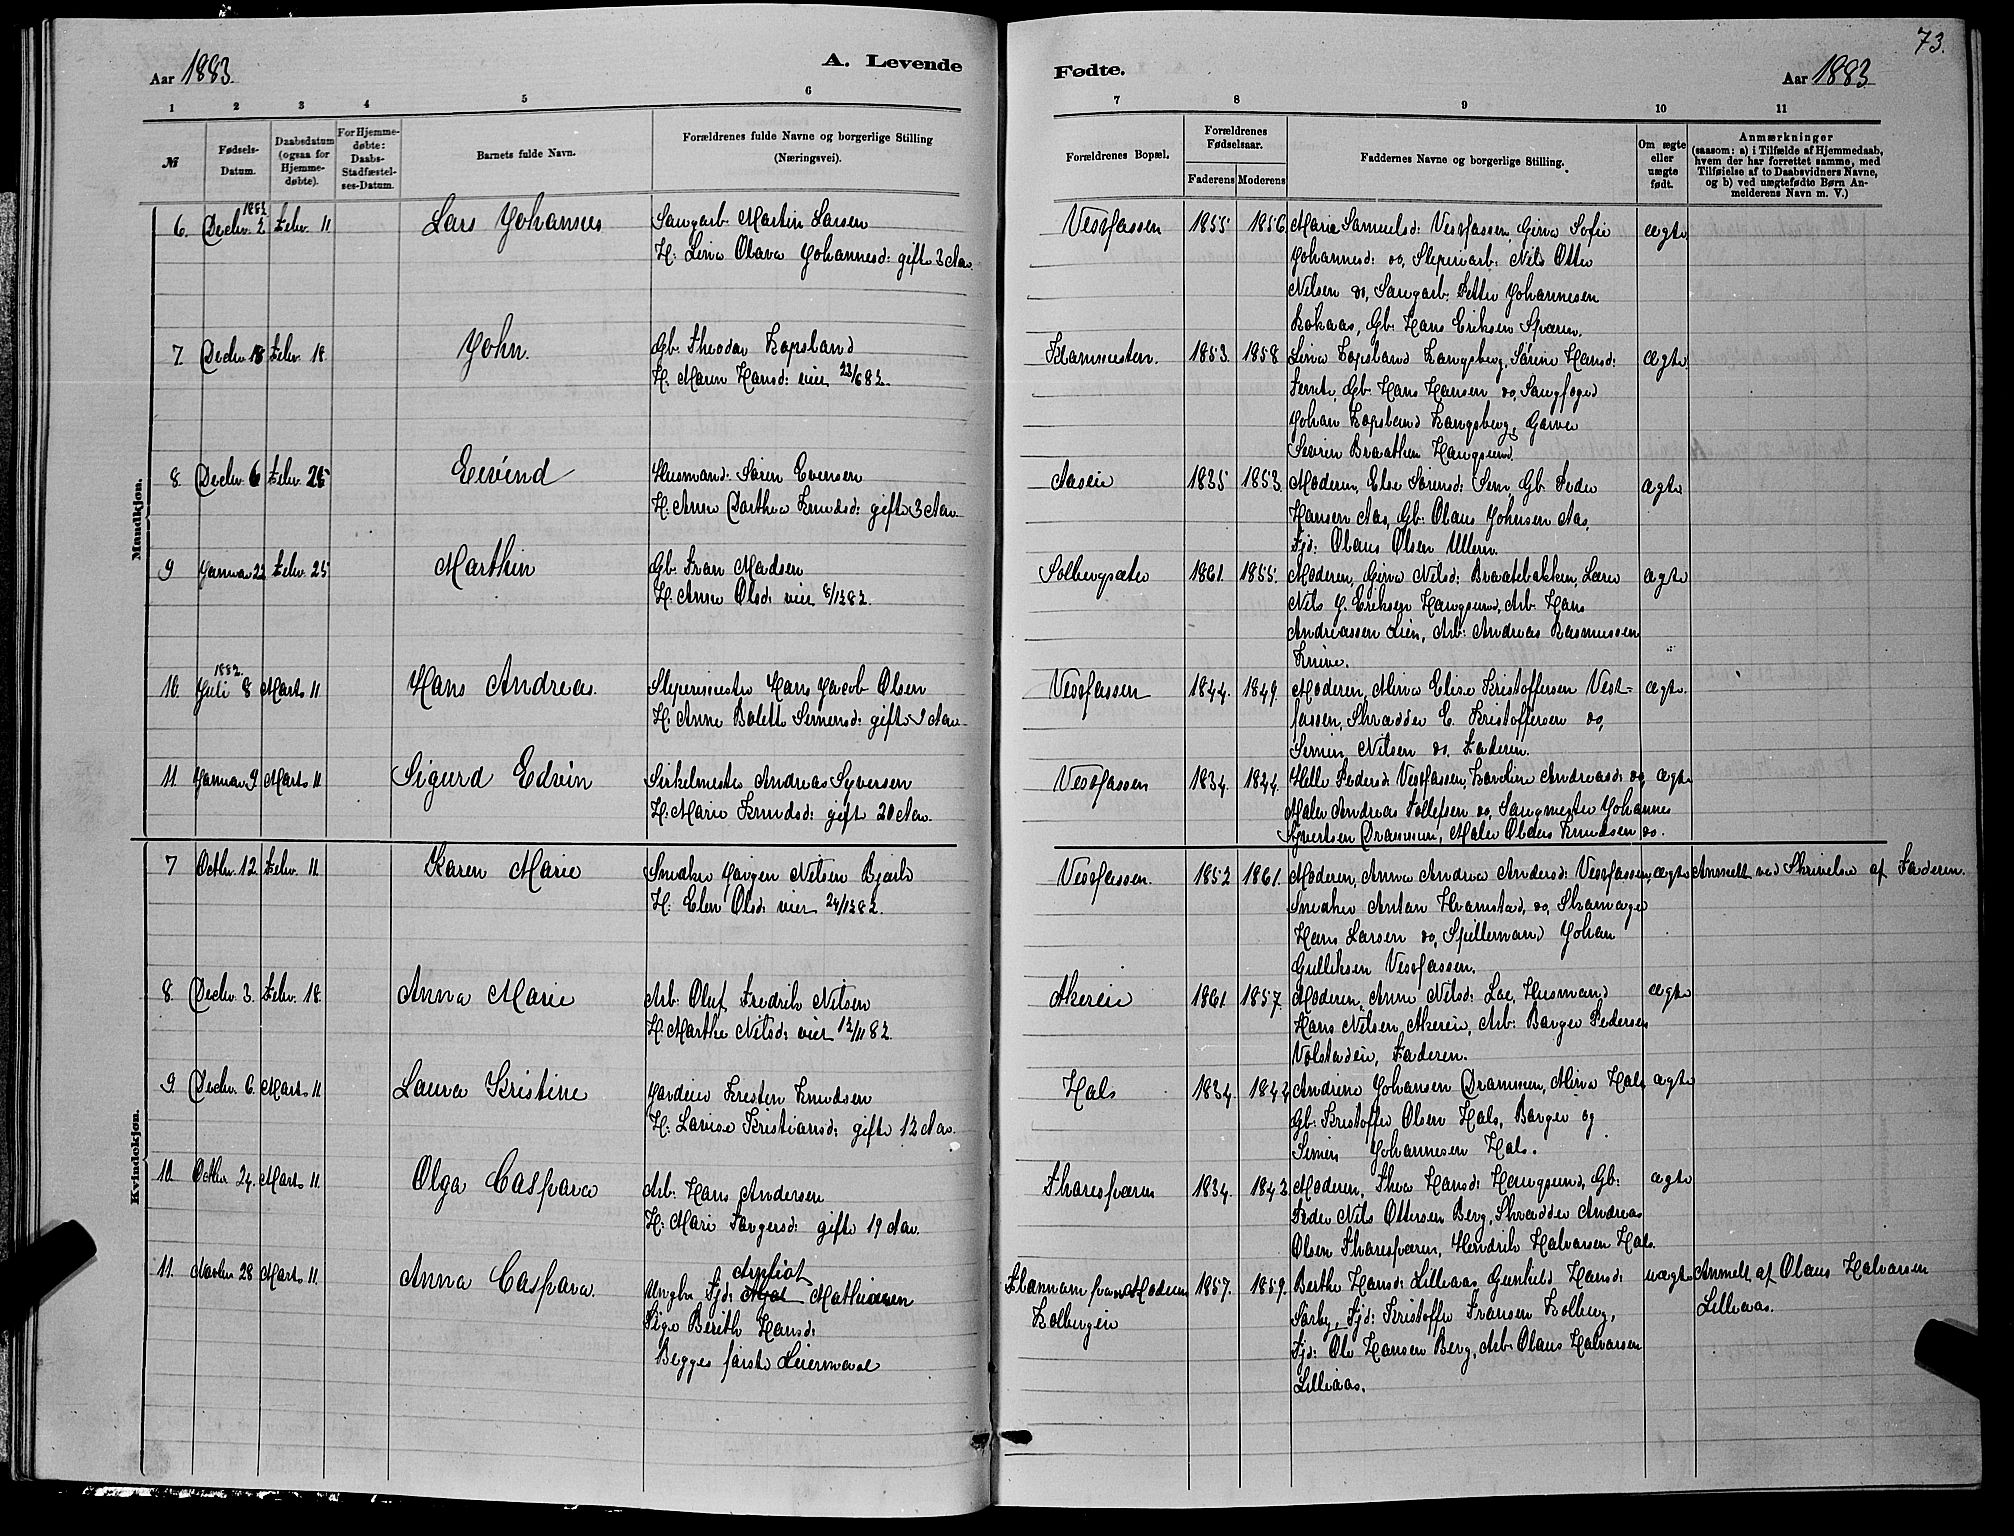 73.
Aar 1883
A. Levende
Fødte.
Aar 1883
1 2 3 4 5 6
7 8 9 10 11
№
Fødsels-Datum.
Daabsdatum (ogsaa for Hjemmedøbte).
For Hjemmedøbte: Daabs-Stadfæstelses-Datum.
Barnets fulde Navn.
Forældrenes fulde Navne og borgerlige Stilling
(Næringsvei).
Forældrenes Bopæl.
Forældrenes Fødselsaar.
Faderens Moderens
Faddernes Navne og borgerlige Stilling.
Om ægte eller uægte født.
Anmærkninger
(saasom: a) i Tilfælde af Hjemmedaab,
hvem der har forrettet samme, med
Tilføielse af to Daabsvidners Navne,
og b) ved uægtefødte Børn Anmelderens Navn m. V.)
Mandkjøn.
6. 1882 Decbr. 2 Febr. 11 Lars Johannes
Saugarb. Martin Larsen
H: Lina Olava Johannesd: gifte 3 Aar.
Vestfossen 1855 1856
Maria Samuelsd: Vestfossen, Gina Sofie
Johannesd: do, Sliperiarb: Nils Otto
Nilsen do, Saugarb. Petter Johannesen
Kokaas, Gb. Hans Eriksen Sparen.
ægte
7 Decbr. 18 Febr. 18. John.
Gb. Theodor Kopsland
H. Maren Hansd: viet 23/6 82.
1853. 1858.
Lina Kopsland Kongsberg, Sørine Hansd:
Temte, Gb. Hans Hansen do, Saugfoged
Johan Kopsland Kongsberg, Garver
Severin Braathen Haugsund.
ægte
8. Decbr. 6 Febr. 25 Eivind
Husmand Søren Evensen
H. Anne Dorthea Knudsd: gifte 3 Aar.
Aaseie 1835 1853.
Moderen, Else Sørensd: Sem, Gb. Peder
Hansen Aas, Gb: Olaus Johnsen Aas,
Fjd: Olaus Olsen Ullern.
ægte
9 Januar 22 Febr. 25 Marthin
Gb. Iran Madsen
H: Anne Olsd: viet 8/12 82.
Solbergsæter 1861. 1855.
Moderen, Gina Nilsd: Braatebakken, Lærer
Nils J. Eriksen Haugsund, Arb. Hans
Andreassen Lien, Arb: Andreas Rasmussen
Knive.
ægte
10. 1882. Juli 8 Marts 11 Hans Andreas.
Slipermester Hans Jacob Olsen
H: Anne Bolette Simensd: gifte 9 Aar
Vestfossen 1844. 1849.
Moderen, Mina Elise Kristoffersen Vest-
fossen, Skrædder E. Kristoffersen do,
Simen Nilsen do. Faderen.
ægte.
11. Januar 9. Marts 11 Sigurd Edvin
Sirkelmester Andreas Syversen
H: Marie Knudsd: gift 20 Aar.
Vestfossen 1834. 1844.
Helle Pedersd: Vestfossen, Karoline Andreasd: do,
Maler Andreas Tollefsen do, Saugmester Johannes
Syvertsen Drammen, Maler Olaus Knudsen do.
ægte
Kvindekjøn.
7 Octbr. 12. Febr. 11. Karen Marie
Snedker Jørgen Nilsen Bjerke
H: Elen Olsd: viet 24/12 82.
Vestfossen. 1852 1861.
Moderen, Anna Andrea Andersd: Vestfossen,
Snedker Anton Hramstad, do, Skomager
Hans Larsen do, Spillemand Johan
Gulliksen Vestfossen.
ægte
Anmeldt ved Skrivelse af Faderen.
8 Decbr. 3. Febr. 18. Anna Marie
Arb: Oluf Fredrik Nilsen
H: Marthe Nilsd: viet 12/11 82.
Akereie 1861 1857.
Moderen, Anne Nilsd: Loe, Husmand
Hans Nilsen Akereie, Arb: Borger Pedersen
Volstadeie, Faderen.
ægte
9. Decbr. 6. Marts 11 Laura Kristine
Gaardeier Kristen Knudsen
H: Lovise Kristiansd: gifte 12 Aar.
Hals 1834. 1842
Andrine Johansen Drammen, Mina Hals
Gb: Kristoffer Olsen Hals, Borger og
Simen Johannesen Hals.
ægte
10. Octbr 24. Marts 11. Olga Caspara
Arb: Hans Andersen
H: Mari Torgersd: gifte 19 Aar.
1834. 1842.
Moderen, Thea Hansd: Haugsund, Gb:
Peder Nils Ottersen Berg, Skrædder Andreas
Olsen, Hendrik Halvorsen Hals.
ægte
11. Novbr 28 Marts 11. Anna Caspara.
Ungkr. Fjd: Mathiesen
Pige Berith Hansd:
Begges første Leiermaal
Moderen
Kolbergeie
1857. 1859.
Berthe Hansd: Lilleaas Gunhild Hansd:
Sørby, Fjd: Kristoffer Fransen Kolberg,
Fjd: Ole Hansen Berg, Arb: Olaus Halvorsen
Lilleaas.
uægte
Anmeldt af Olaus Halvorsen
Lilleaas.